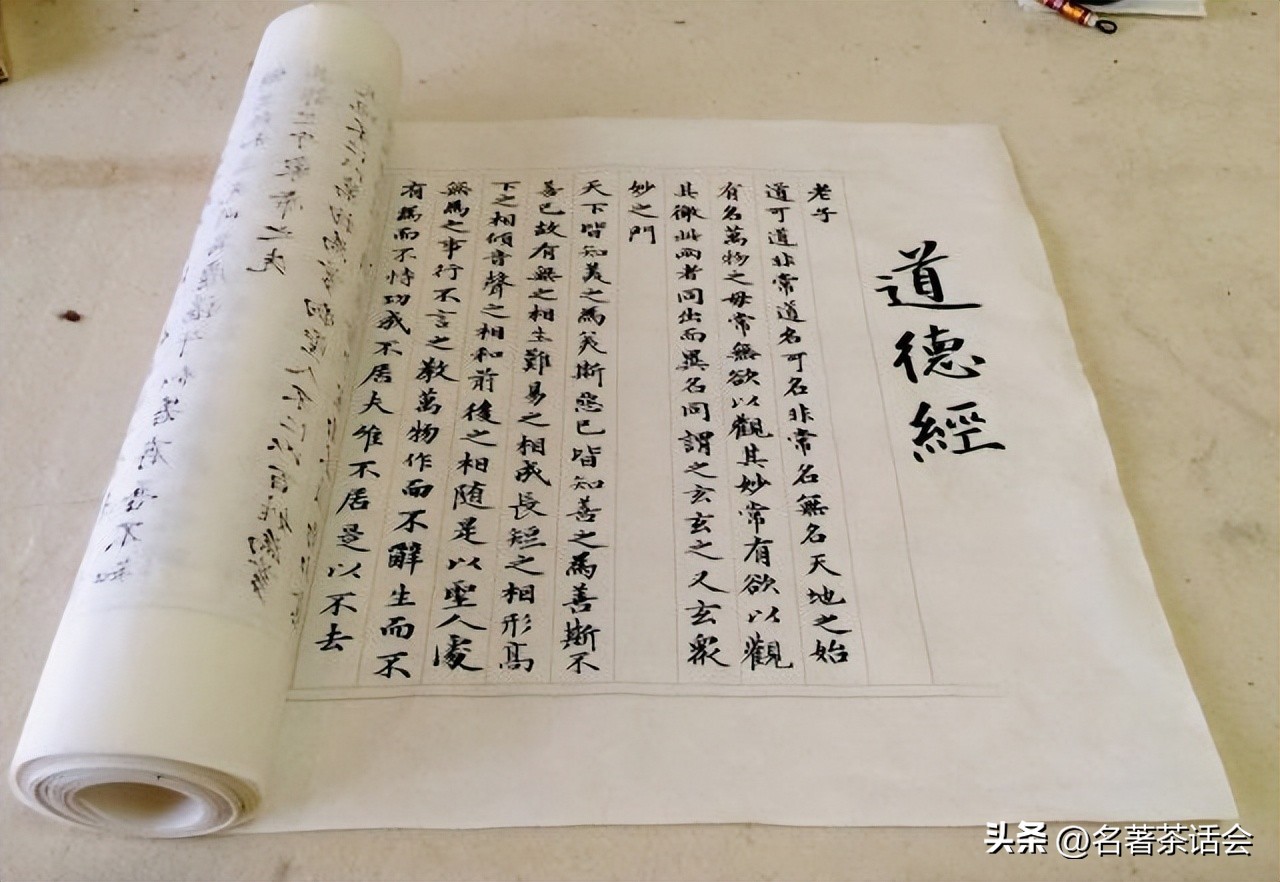 道德經
老子
道可道非常道名可名非常名無名天地之始
有名萬物之母常無欲以觀其妙常有欲以觀
其徼此兩者同出而異名同謂之玄玄之又玄衆
妙之門
天下皆知美之為美斯惡已皆知善之為善斯不
善已故有無之相生難易之相成長短之相形高
下之相傾音聲之相和前後之相随是以聖人處
無為之事行不言之教萬物作而不辭生而不
有為而不恃功成不居夫唯不居是以不去
头条 @名著茶话会